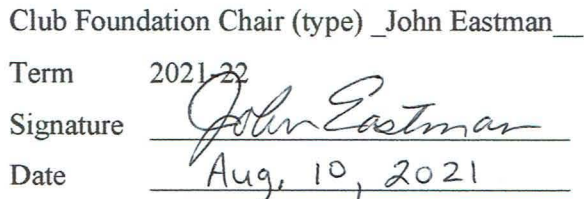 Club Foundation Chair (type) _John Eastman__
Term 2021-22
Signature John Eastman
Date Aug. 10, 2021